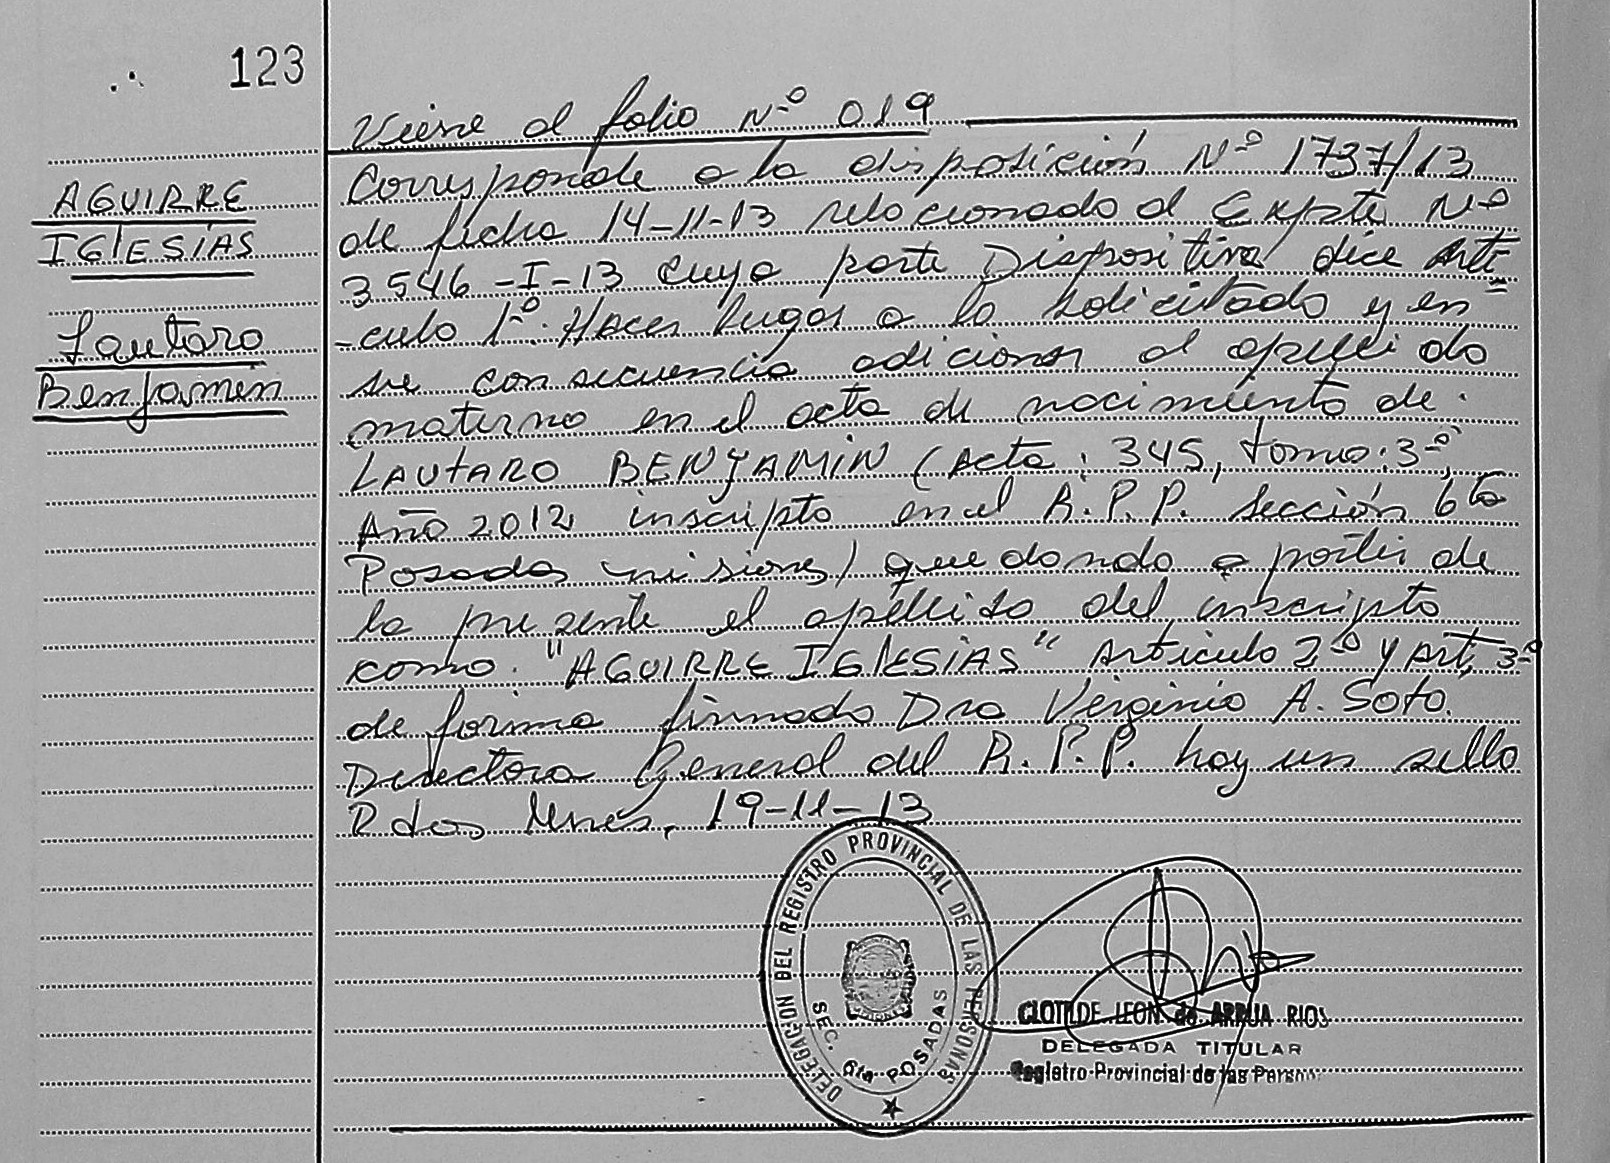 123
AGUIRRE
IGLESÍAS
Lautaro
Benjamín
Viene al folio Nº 019
Corresponde a la disposición Nº 1737/13
de fecha 14-11-13 relacionado al Expte Nº
3546-I-13 cuya parte Dispositiva dice Arti=
-culo 1º: Hacer lugar a lo solicitado y en
su consecuencia adicionar el apellido
materno en el acta de nacimiento de.
LAUTARO BENJAMÍN (Acta: 345, tomo: 3º,
Año 2012 inscripto en el R.P.P. sección 6ta
Posadas misiones) quedando a partir de
la presente el apellido del inscripto
como. "AGUIRRE IGLESÍAS" Artículo 2º y Art, 3º
de forma firmado Dra Verginia A. Soto.
Directora General del R.P.P. hay un sello
Pdas Mnes, 19-11-13
DELEGACION DEL REGISTRO PROVINCIAL DE LAS PERSONAS
SEC. 6ta POSADAS
CLOTILDE LEON de ARRUA RIOS
DELEGADA TITULAR
Registro Provincial de las Person